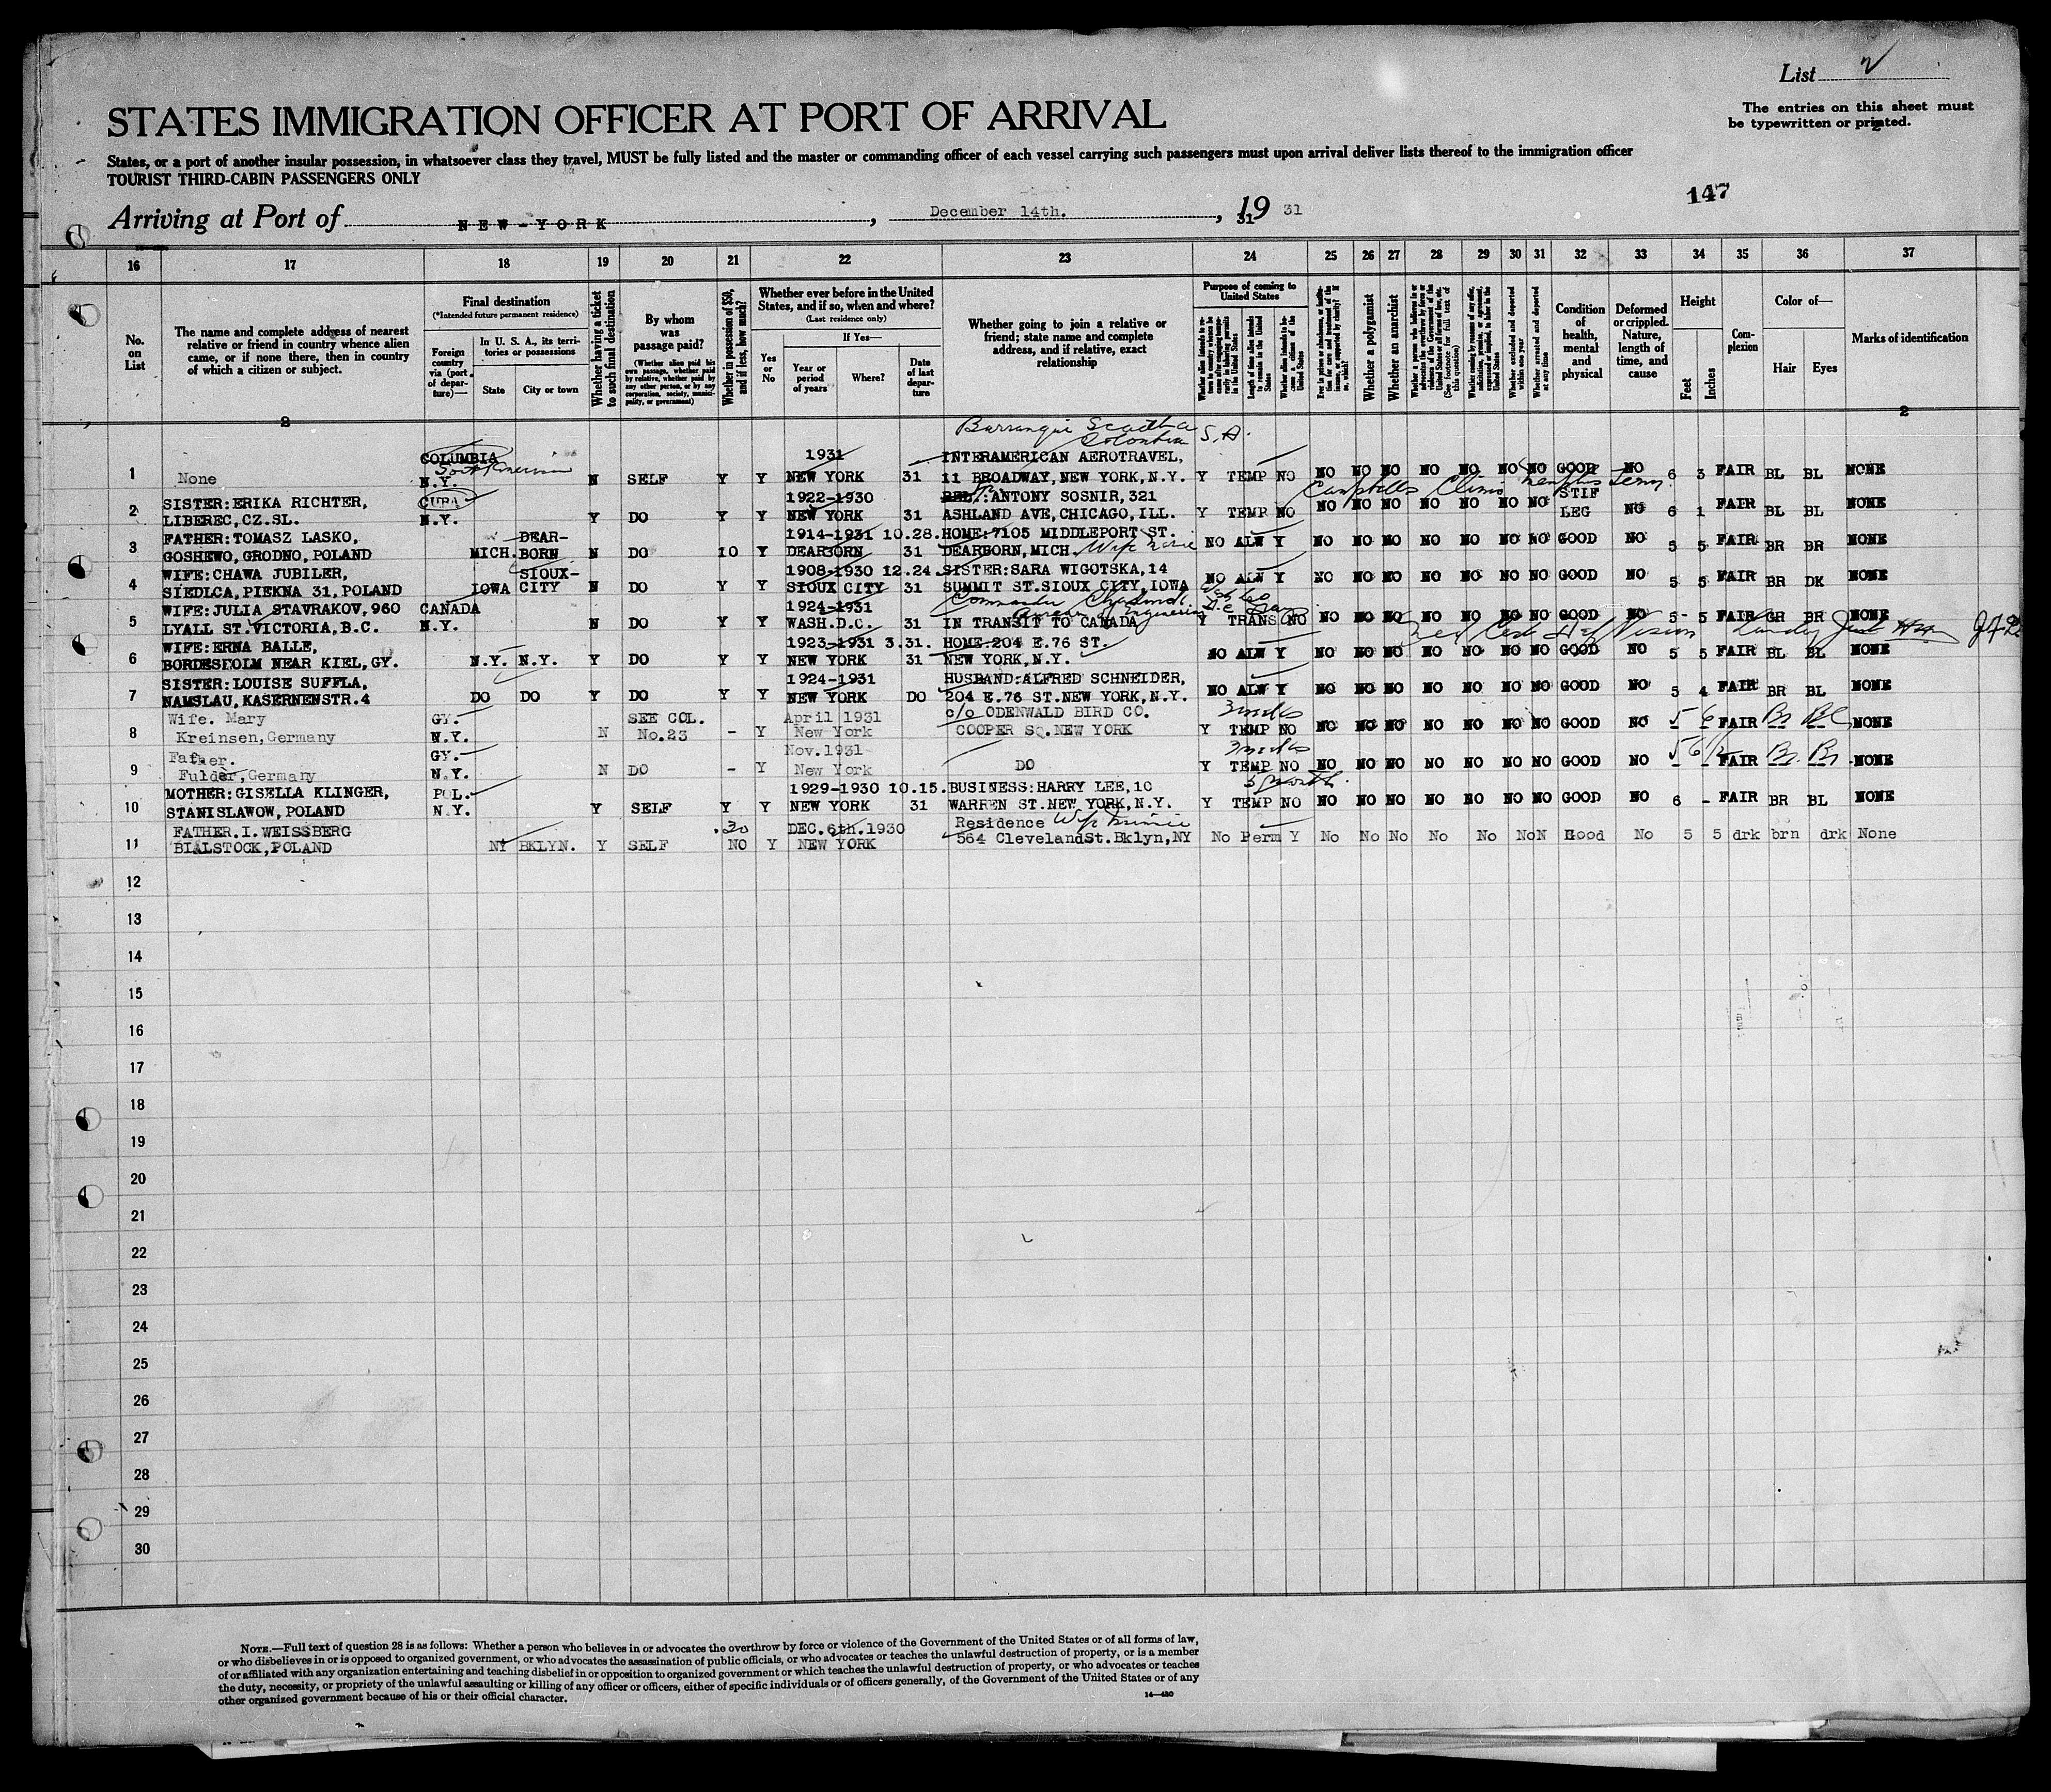 List 2
The entries on this sheet must
be typewritten or printed.
STATES IMMIGRATION OFFICER AT PORT OF ARRIVAL
States, or a port of another insular possession, in whatsoever class they travel, MUST be fully listed and the master or commanding officer of each vessel carrying such passengers must upon arrival deliver lists thereof to the immigration officer
TOURIST THIRD-CABIN PASSENGERS ONLY
147
Arriving at Port of NEW-YORK, December 14th., 19 31
31
16 17 18 19 20 21 22 23 24 25 26 27 28 29 30 31 32 33 34 35 36 37
No. on List
The name and complete address of nearest relative or friend in country whence alien came, or if none there, then in country of which a citizen or subject.
Final destination
(*Intended future permanent residence)
Foreign country via (port of departure)—
In U. S. A., its territories or possessions
State
City or town
Whether having a ticket to such final destination
By whom was passage paid?
(Whether alien paid his own passage, whether paid by relative, whether paid by any other person, or by any corporation, society, municipality, or government)
Whether in possession of $50, and if less, how much?
Whether ever before in the United States, and if so, when and where?
(Last residence only)
Yes or No
If Yes—
Year or period of years
Where?
Date of last departure
Whether going to join a relative or friend; state name and complete address, and if relative, exact relationship
Purpose of coming to United States
Length of time alien intends to remain in the United States
Whether alien intends to become a citizen of the United States
Whether a polygamist
Whether an anarchist
(See footnote for full text of this question)
Whether excluded and deported within one year
Whether arrested and deported at any time
Condition of health, mental and physical
Deformed or crippled. Nature, length of time, and cause
Height
Feet
Inches
Complexion
Color of—
Hair
Eyes
Marks of identification
2 2
Colombia S.A.
COLUMBIA 1931 INTERAMERICAN AEROTRAVEL,
South America
1 None N.Y. N SELF Y Y NEW YORK 31 11 BROADWAY, NEW YORK, N.Y. Y TEMP NO NO NO NO NO NO NO NO GOOD NO 6 3 FAIR BL BL NONE
Campbells Clinic Memphis Tenn.
SISTER:ERIKA RICHTER, CUBA 1922-1930 ANTONY SOSNIR, 321 STIF
2 LIBEREC, CZ.SL. N.Y. Y DO Y Y NEW YORK 31 ASHLAND AVE, CHICAGO, ILL. Y TEMP NO NO NO NO NO NO NO NO LEG NO 6 1 FAIR BL BL NONE
FATHER:TOMASZ LASKO, DEAR- 1914-1931 10.28. HOME:7105 MIDDLEPORT ST.
3 GOSHEWO, GRODNO, POLAND MICH. BORN N DO 10 Y DEARBORN 31 DEARBORN, MICH. Wife NO ALW Y NO NO NO NO NO NO NO GOOD NO 5 5 FAIR BR BR NONE
WIFE:CHAWA JUBILER, SIOUX- 1908-1930 12.24. SISTER:SARA WIGOTSKA, 14
4 SIEDLCA, PIEKNA 31, POLAND IOWA CITY N DO Y Y SIOUX CITY 31 SUMMIT ST. SIOUX CITY, IOWA NO ALW Y NO NO NO NO NO NO NO GOOD NO 5 5 FAIR BR DK NONE
WIFE:JULIA STAVRAKOV, 960 CANADA 1924-1931
5 LYALL ST. VICTORIA, B.C. N.Y. N DO Y Y WASH.D.C. 31 IN TRANSIT TO CANADA Y TRANS NO NO NO NO NO NO NO NO GOOD NO 5 5 FAIR GR BR NONE
WIFE:ERNA BALLE, 1923-1931 3.31. HOME-204 E.76 ST.
6 BORDESHOLM NEAR KIEL, GY. N.Y. N.Y. Y DO Y Y NEW YORK 31 NEW YORK, N.Y. NO ALW Y NO NO NO NO NO NO NO GOOD NO 5 5 FAIR BL BL NONE
SISTER:LOUISE SUFFLA, 1924-1931 HUSBAND:ALFRED SCHNEIDER,
7 NAMSLAU, KASERNENSTR.4 DO DO Y DO Y Y NEW YORK DO 204 E.76 ST. NEW YORK, N.Y. NO ALW Y NO NO NO NO NO NO NO GOOD NO 5 4 FAIR BR BL NONE
Wife. Mary GY. SEE COL. April 1931 c/o ODENWALD BIRD CO. 3 weeks
8 Kreinsen, Germany N.Y. N No.23 - Y New York COOPER SQ. NEW YORK Y TEMP NO NO NO NO NO NO NO NO GOOD NO 5 6 FAIR Br Bl NONE
Father. GY. Nov.1931 3 weeks
9 Fulder, Germany N.Y. N DO - Y New York DO Y TEMP NO NO NO NO NO NO NO NO GOOD NO 5 6 1/2 FAIR Br. Br NONE
MOTHER:GISELLA KLINGER, POL. 1929-1930 10.15. BUSINESS:HARRY LEE, 10 3 month
10 STANISLAWOW, POLAND N.Y. Y SELF Y Y NEW YORK 31 WARREN ST. NEW YORK, N.Y. Y TEMP NO NO NO NO NO NO NO NO GOOD NO 6 - FAIR BR BL NONE
FATHER.I. WEISSBERG .30 DEC.6th.1930 Residence Wife Minnie
11 BIALSTOCK, POLAND NY BKLYN. Y SELF NO Y NEW YORK 564 ClevelandSt. Bklyn, NY No Perm Y No No No No No No N Good No 5 5 drk brn drk None
12
13
14
15
16
17
18
19
20
21
22
23
24
25
26
27
28
29
30
NOTE.—Full text of question 28 is as follows: Whether a person who believes in or advocates the overthrow by force or violence of the Government of the United States or of all forms of law,
or who disbelieves in or is opposed to organized government, or who advocates the assassination of public officials, or who advocates or teaches the unlawful destruction of property, or is a member
of or affiliated with any organization entertaining and teaching disbelief in or opposition to organized government or which teaches the unlawful destruction of property, or who advocates or teaches
the duty, necessity, or propriety of the unlawful assaulting or killing of any officer or officers, either of specific individuals or of officers generally, of the Government of the United States or of any
other organized government because of his or their official character.
14—430